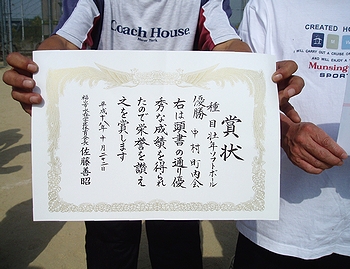 賞状
種目 壮年ソフトボール
優勝 中村町内会
右は頭書の通り優
秀な成績を得られ
たので栄誉を讃え
之を賞します
平成十八年十月二十二日
佐藤善昭
Coach House
New York
CREATED HO
I WILL CARRY OUT A CRUISE O
AND WILL ENJOY A
Munsing
SPORT